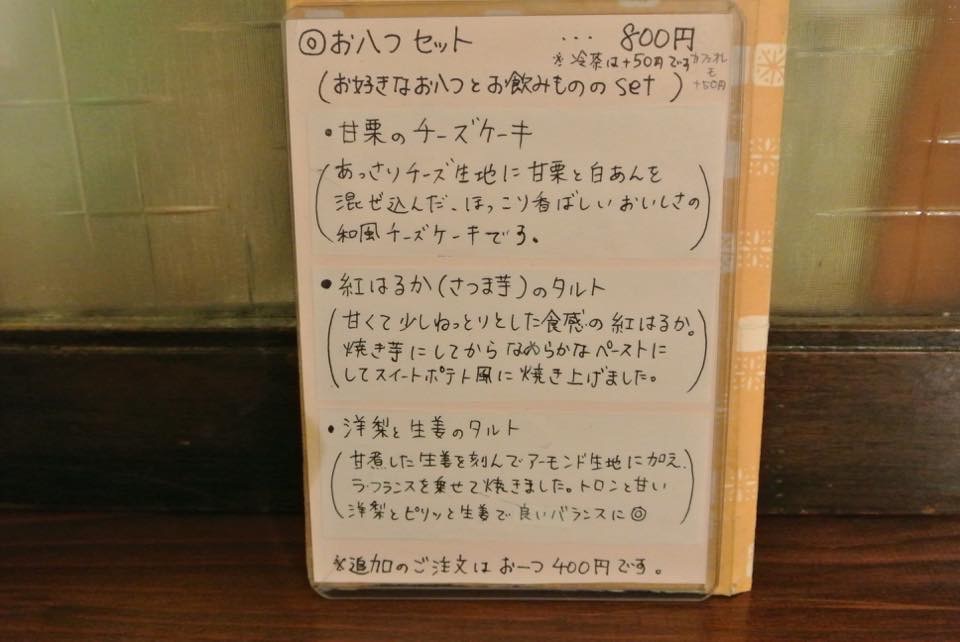 ◎お八つセット ... 800円
※冷茶は+50円です カフェオレも+50円
(お好きなお八つとお飲みもののset)
・甘栗のチーズケーキ
(あっさりチーズ生地に甘栗と白あんを
混ぜ込んだ、ほっこり香ばしいおいしさの
和風チーズケーキです。)
・紅はるか(さつま芋)のタルト
(甘くて少しねっとりとした食感の紅はるか。
焼き芋にしてからなめらかなペーストに
してスイートポテト風に焼き上げました。)
・洋梨と生姜のタルト
(甘煮した生姜を刻んでアーモンド生地に加え、
ラ・フランスを乗せて焼きました。トロンと甘い
洋梨とピリッと生姜で良いバランスに◎)
※追加のご注文はお一つ400円です。